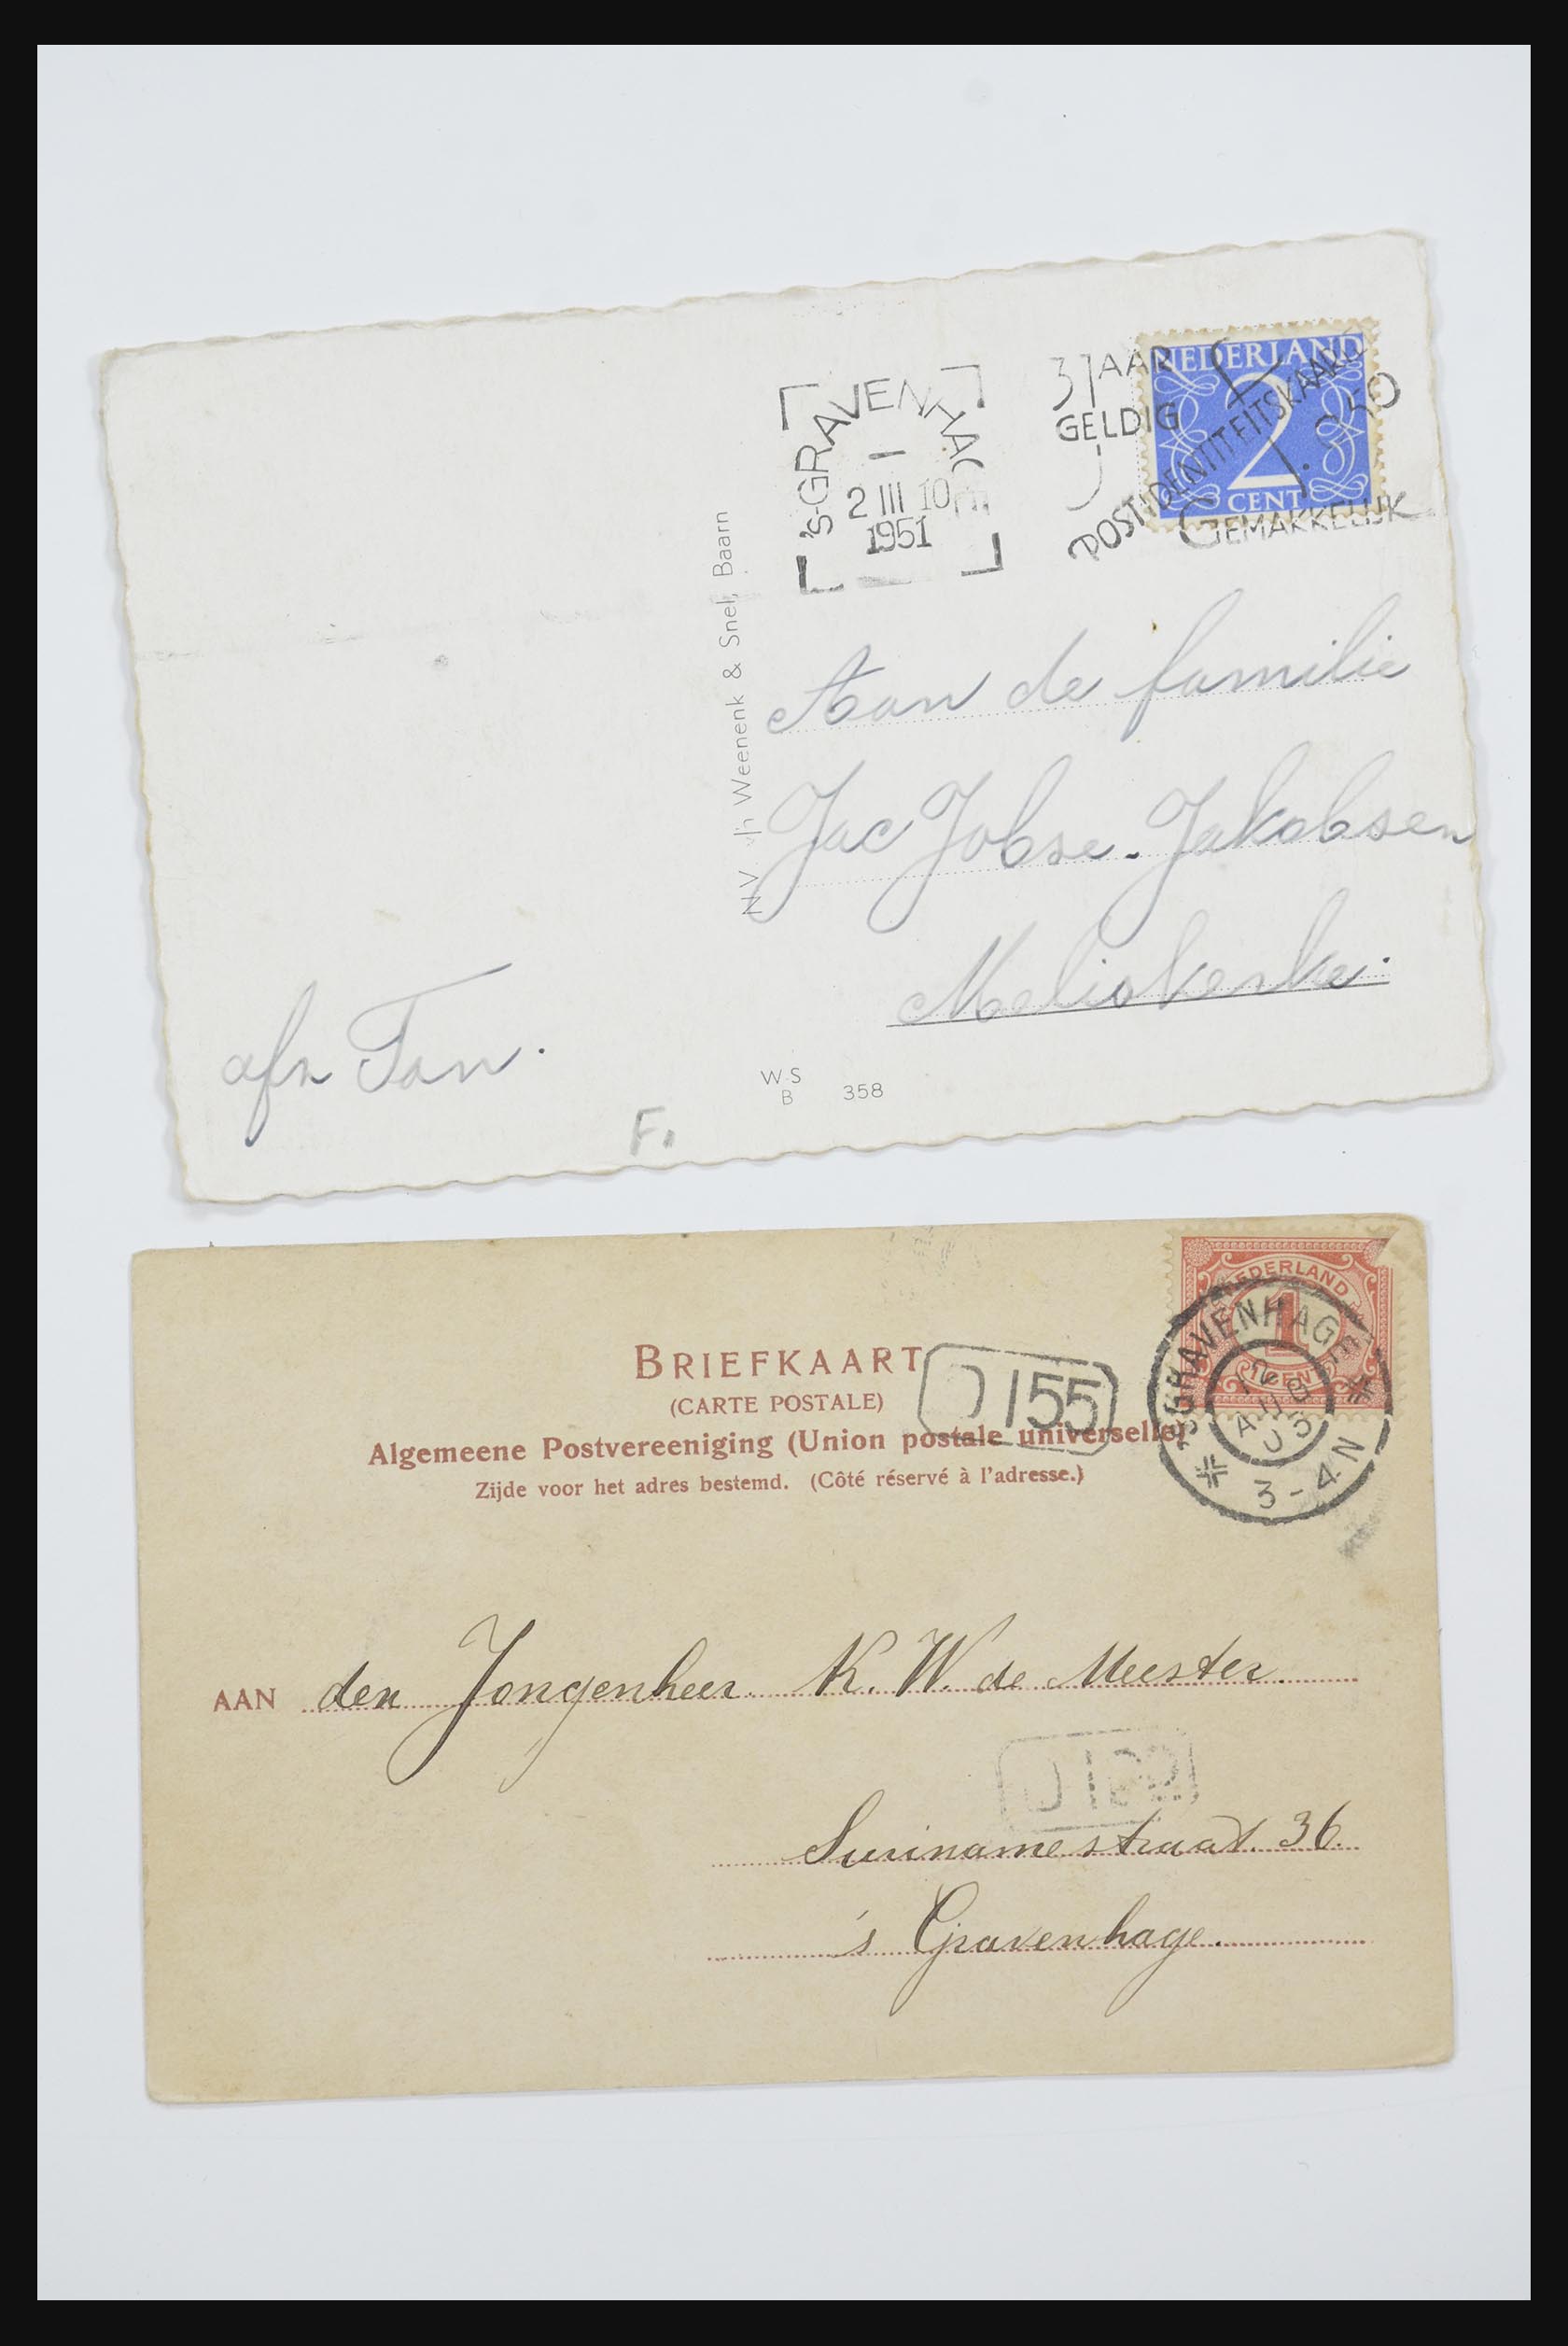 'S-GRAVENHAG
2 III 10
1951
3 JAAR
GELDIG
POSTIDENTITEITSKAART
GEMAKKELIJK
NEDERLAND
2
CENT
N.V. v/h Weenenk & Snel, Baarn
Aan de familie
Jac Jobse-Jakobsen
Meliskerke.
afz Tan.
F.
W.S
B 358
NEDERLAND
1
CENT
'SGRAVENHAGE
AUG
3-4N
BRIEFKAART
(CARTE POSTALE)
155
Algemeene Postvereeniging (Union postale universelle)
Zijde voor het adres bestemd. (Côté réservé à l'adresse.)
AAN den Jongenheer K. W. de Meester.
Surinamestraat. 36.
's Gravenhage.